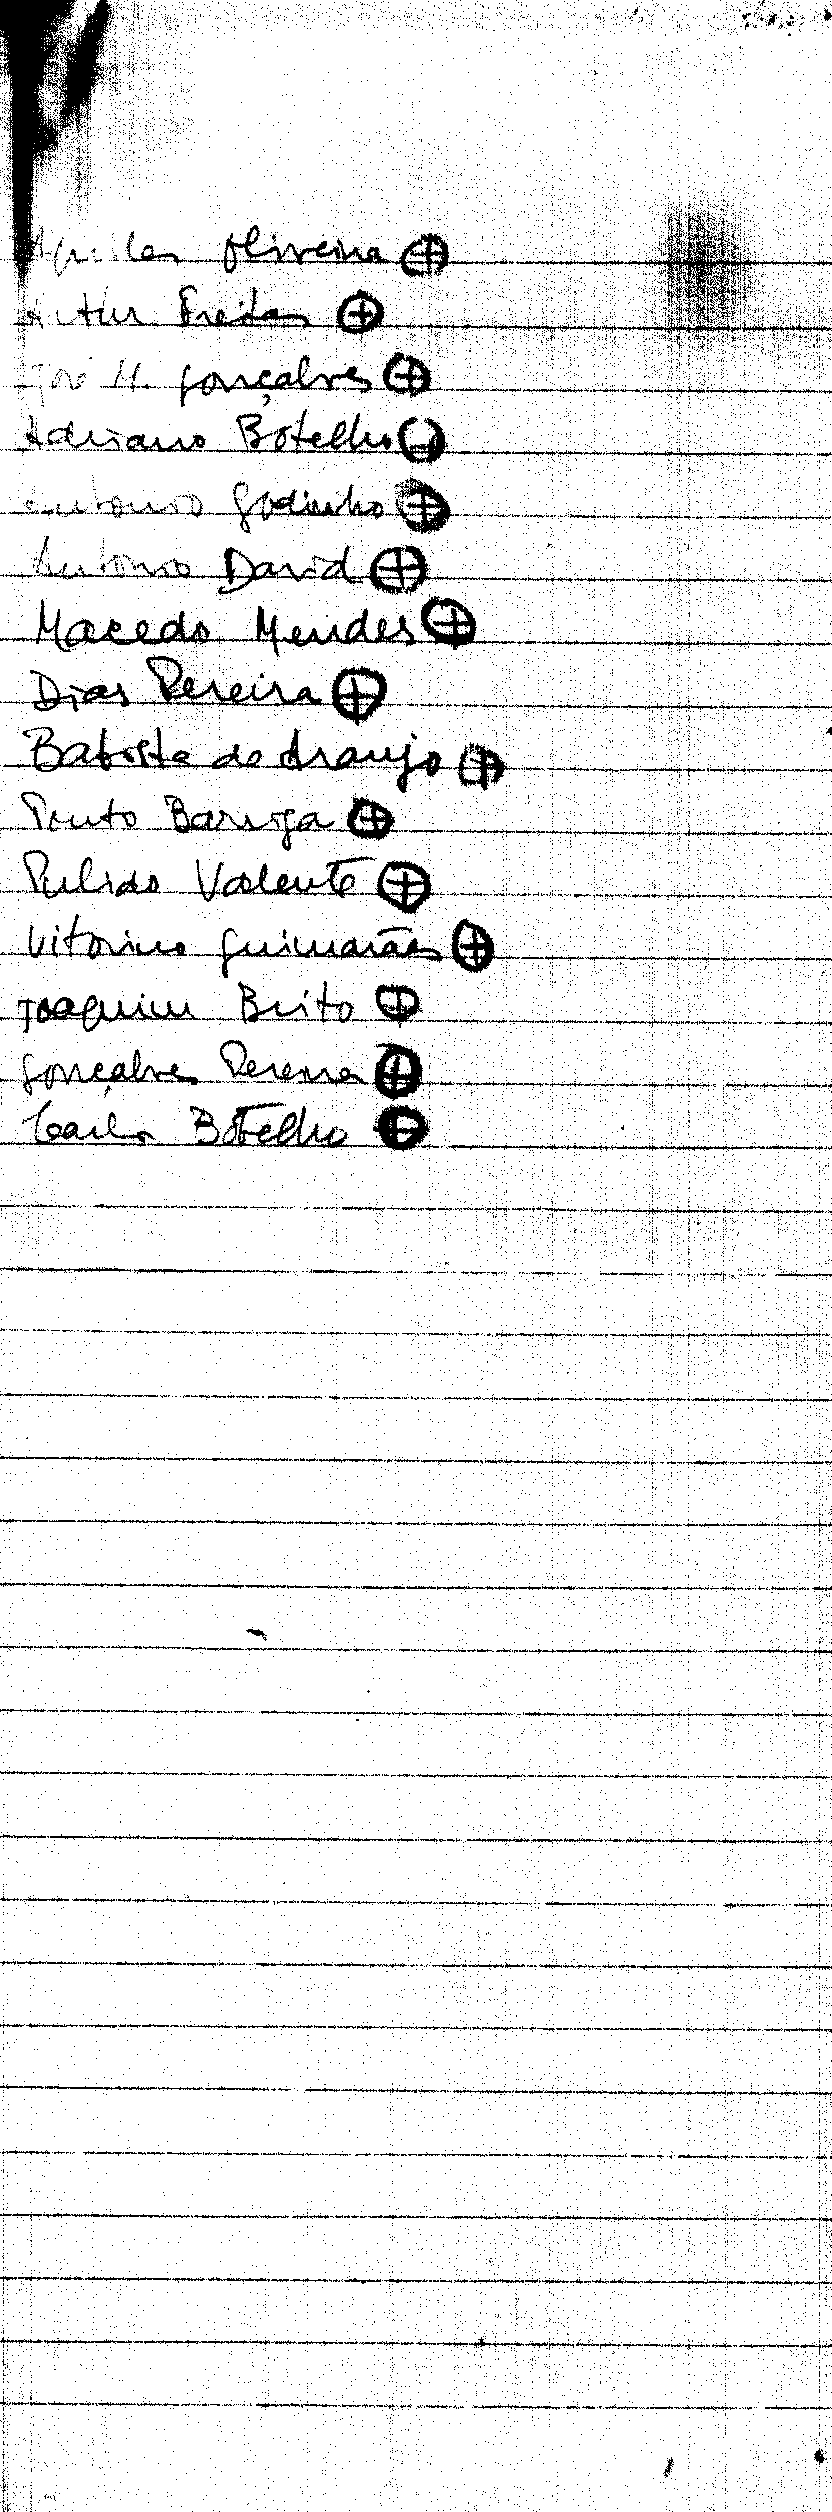 Aquiles Oliveira ⊕
Artur Freitas ⊕
José H. Gonçalves ⊕
Adriano Botelho ⊕
António Godinho ⊕
António David ⊕
Macedo Mendes ⊕
Dias Pereira ⊕
Batista de Araujo ⊕
Pinto Barriga ⊕
Pulido Valente ⊕
Vitorino Guimarães ⊕
Joaquim Brito ⊕
Gonçalves Pereira ⊕
Carlos Botelho ⊕